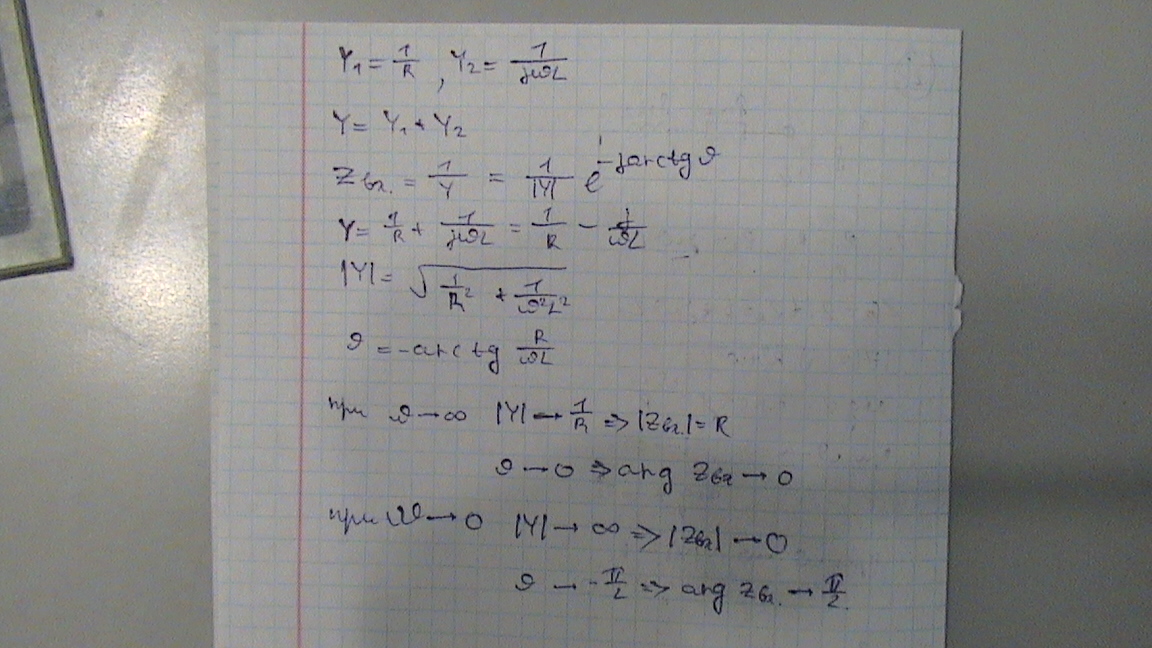 Y₁ = 1/R , Y₂ = 1/jωL
Y = Y₁ + Y₂
Zвх. = 1/Y = 1/|Y| e^(-jarctg φ)
Y = 1/R + 1/jωL = 1/R - j/ωL
|Y| = √(1/R² + 1/ω²L²)
φ = -arctg R/ωL
при ω → ∞ |Y| → 1/R => |Zвх.| = R
φ → 0 => arg Zвх → 0
при ω → 0 |Y| → ∞ => |Zвх| → 0
φ → -π/2 => arg Zвх. → π/2.